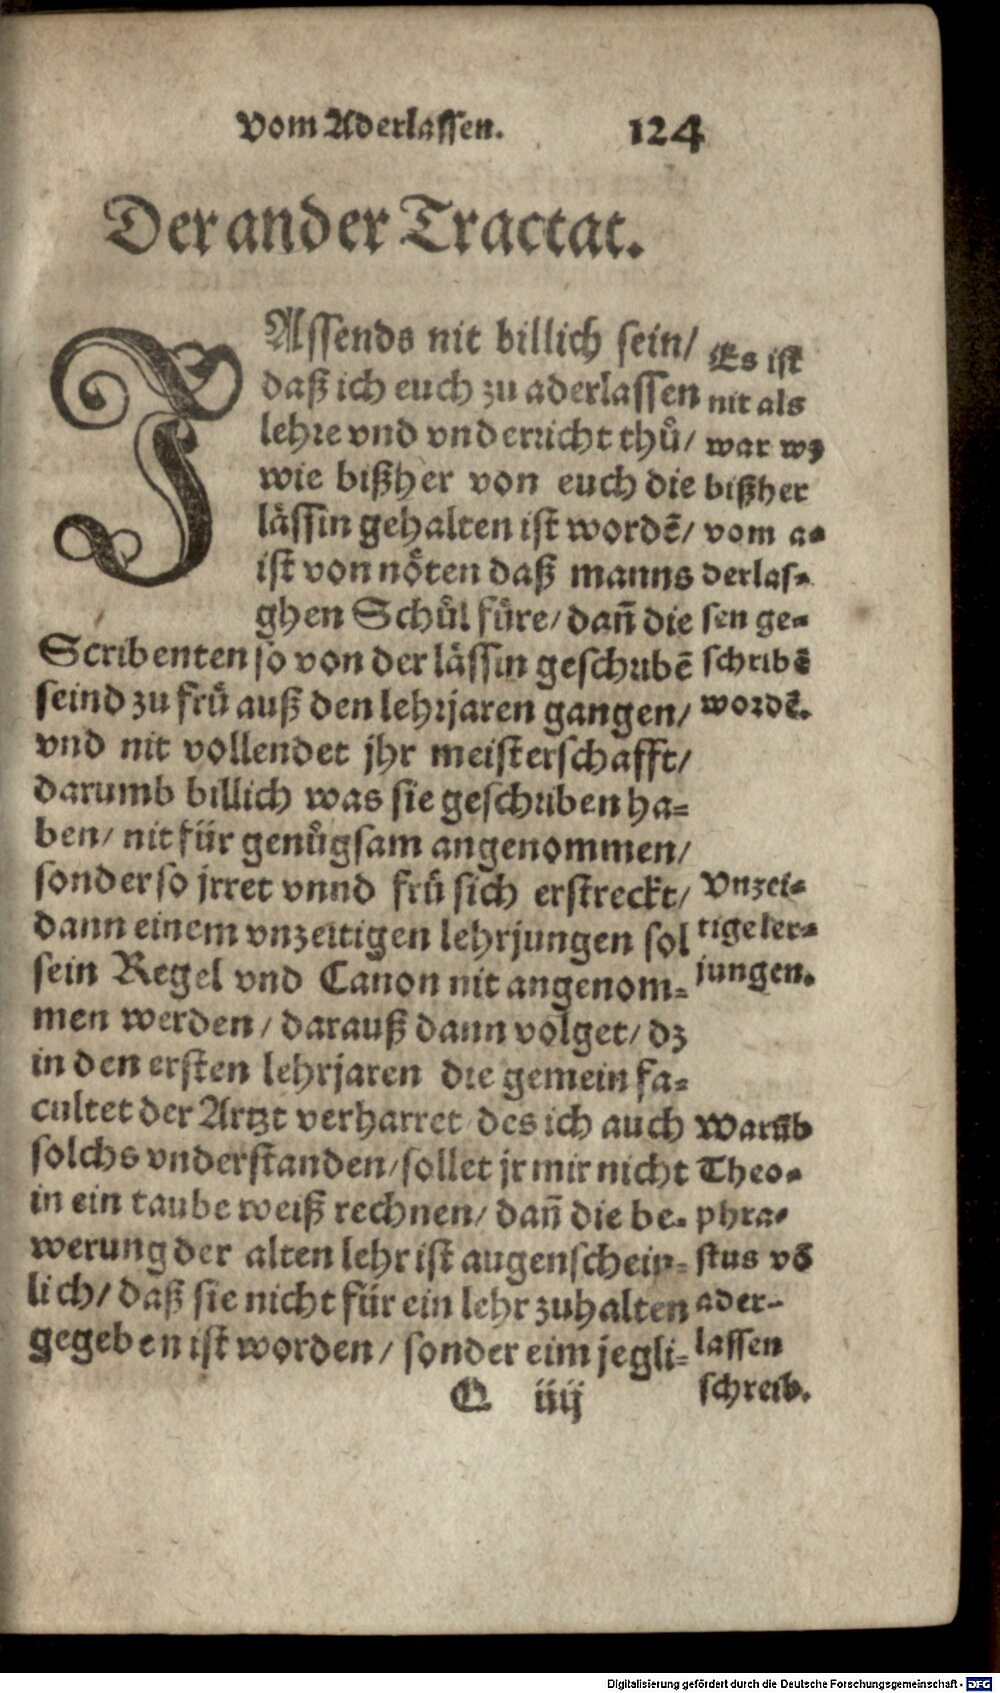 Vom Aderlassen. 124
Der ander Tractat.
Assends nit billich sein/
daß ich euch zu aderlassen
lehre vnd vnderricht thů/
wie bißher von euch die
lässin gehalten ist wordē/
ist von nöten daß manns
ghen Schůl füre/ dañ die
Scribenten so von der lässin geschribē
seind zu frü auß den lehrjaren gangen/
vnd nit vollendet jhr meisterschafft/
darumb billich was sie geschriben ha=
ben/ nit für genůgsam angenommen/
sonder so jrret vnnd frü sich erstreckt/
dann einem vnzeitigen lehrjungen sol
sein Regel vnd Canon nit angenom=
men werden/ darauß dann volget/ dz
in den ersten lehrjaren die gemein fa=
cultet der Artzt verharret des ich auch
solchs vnderstanden/ sollet jr mir nicht
in ein taube weiß rechnen/ dañ die be=
werung der alten lehr ist augenschein=
lich/ daß sie nicht für ein lehr zuhalten
gegeben ist worden/ sonder eim jegli=
Q iiij
Es ist
nit als
war wz
bißher
vom a=
derlas=
sen ge=
schribē
wordē.
Vnzei=
tige ler=
jungen.
Warūb
Theo=
phra=
stus vō
ader=
lassen
schreib.
Digitalisierung gefördert durch die Deutsche Forschungsgemeinschaft - DFG